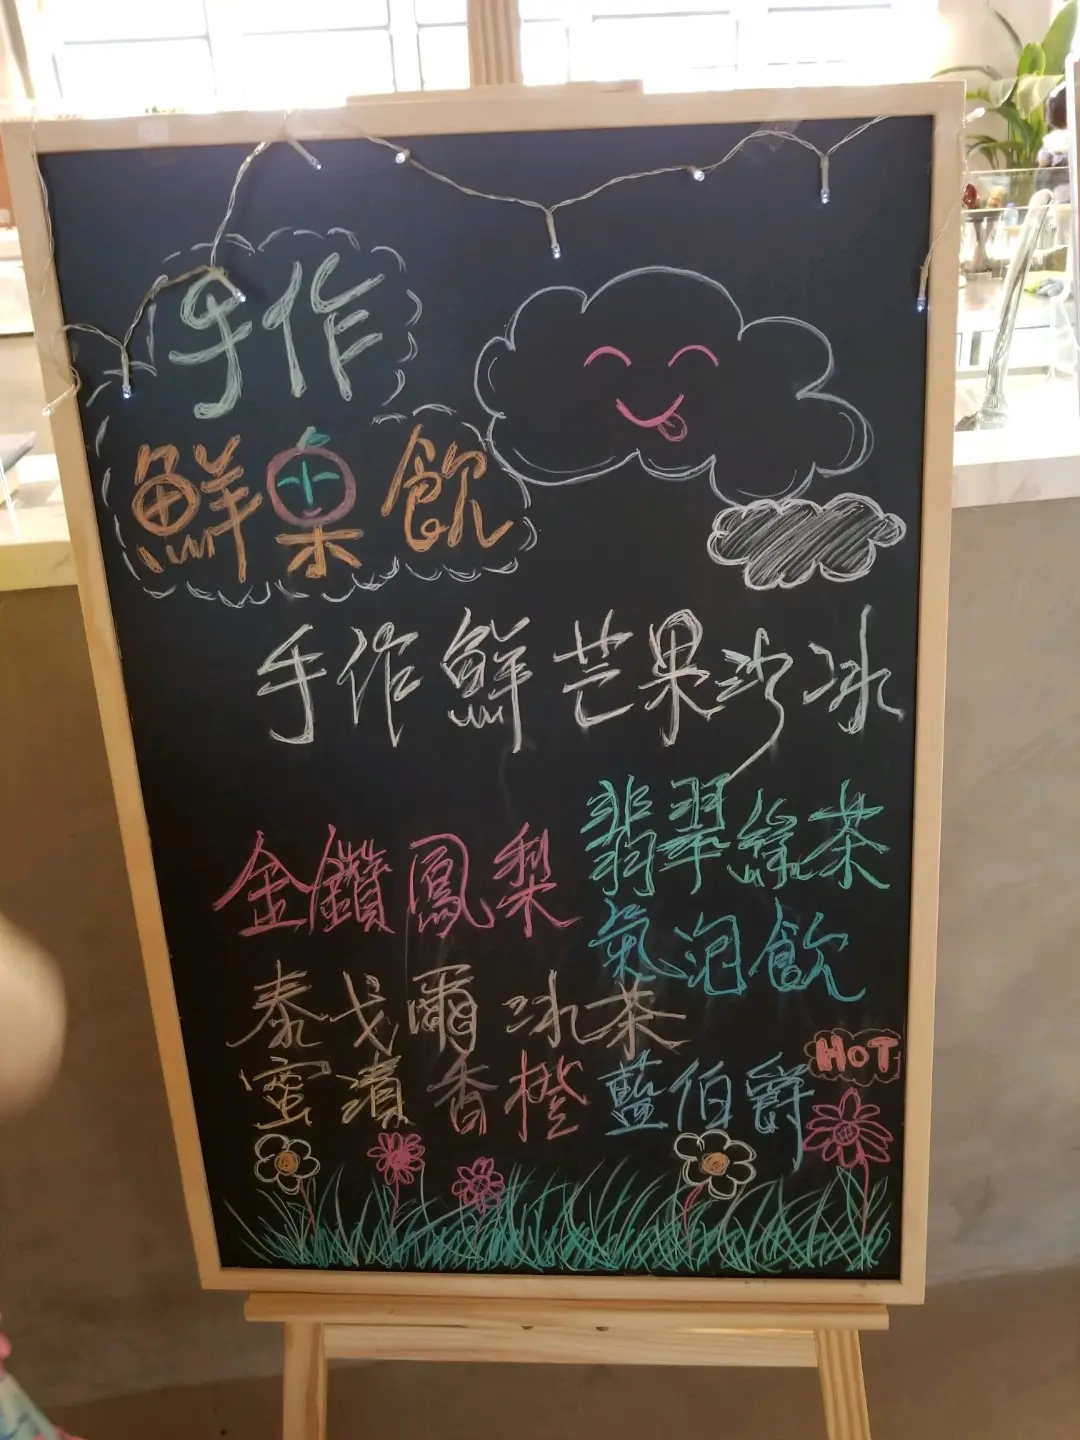 手作
鮮果飲
手作鮮芒果沙冰
翡翠綠茶
金鑽鳳梨
氣泡飲
泰戈爾冰茶
HOT
蜜漬香橙
藍伯爵